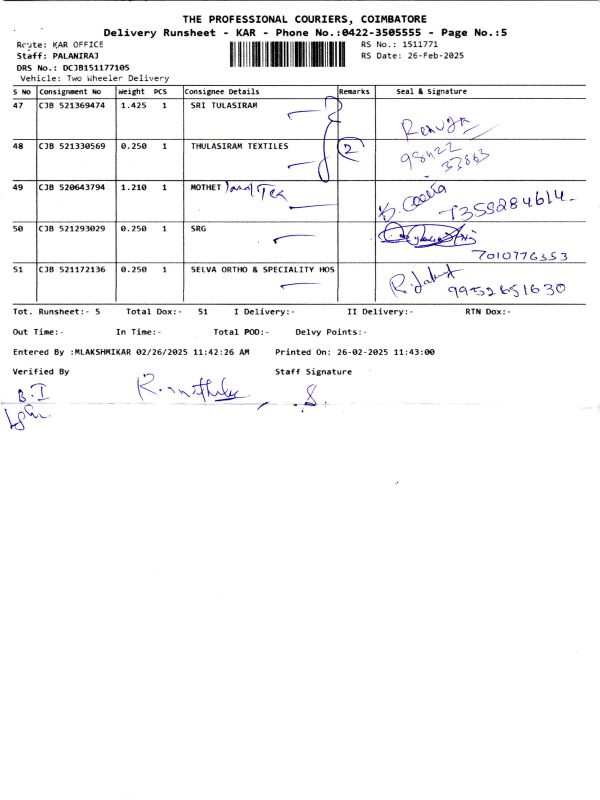 THE PROFESSIONAL COURIERS, COIMBATORE
Delivery Runsheet - KAR - Phone No.:0422-3505555 - Page No.:5
Route: KAR OFFICE
RS No.: 1511771
Staff: PALANIRAJ
RS Date: 26-Feb-2025
DRS No.: DCJB151177105
Vehicle: Two Wheeler Delivery
S No Consignment No Weight PCS Consignee Details Remarks Seal & Signature
47 CJB 521369474 1.425 1 SRI TULASIRAM
Renuga
48 CJB 521330569 0.250 1 THULASIRAM TEXTILES 2
98422
33863
49 CJB 520643794 1.210 1 MOTHET Tex
7358284614
50 CJB 521293029 0.250 1 SRG
7010776353
51 CJB 521172136 0.250 1 SELVA ORTHO & SPECIALITY HOS
9952651630
Tot. Runsheet:- 5 Total Dox:- 51 I Delivery:- II Delivery:- RTN Dox:-
Out Time:- In Time:- Total POD:- Delvy Points:-
Entered By :MLAKSHMIKAR 02/26/2025 11:42:26 AM Printed On: 26-02-2025 11:43:00
Verified By Staff Signature
B.I